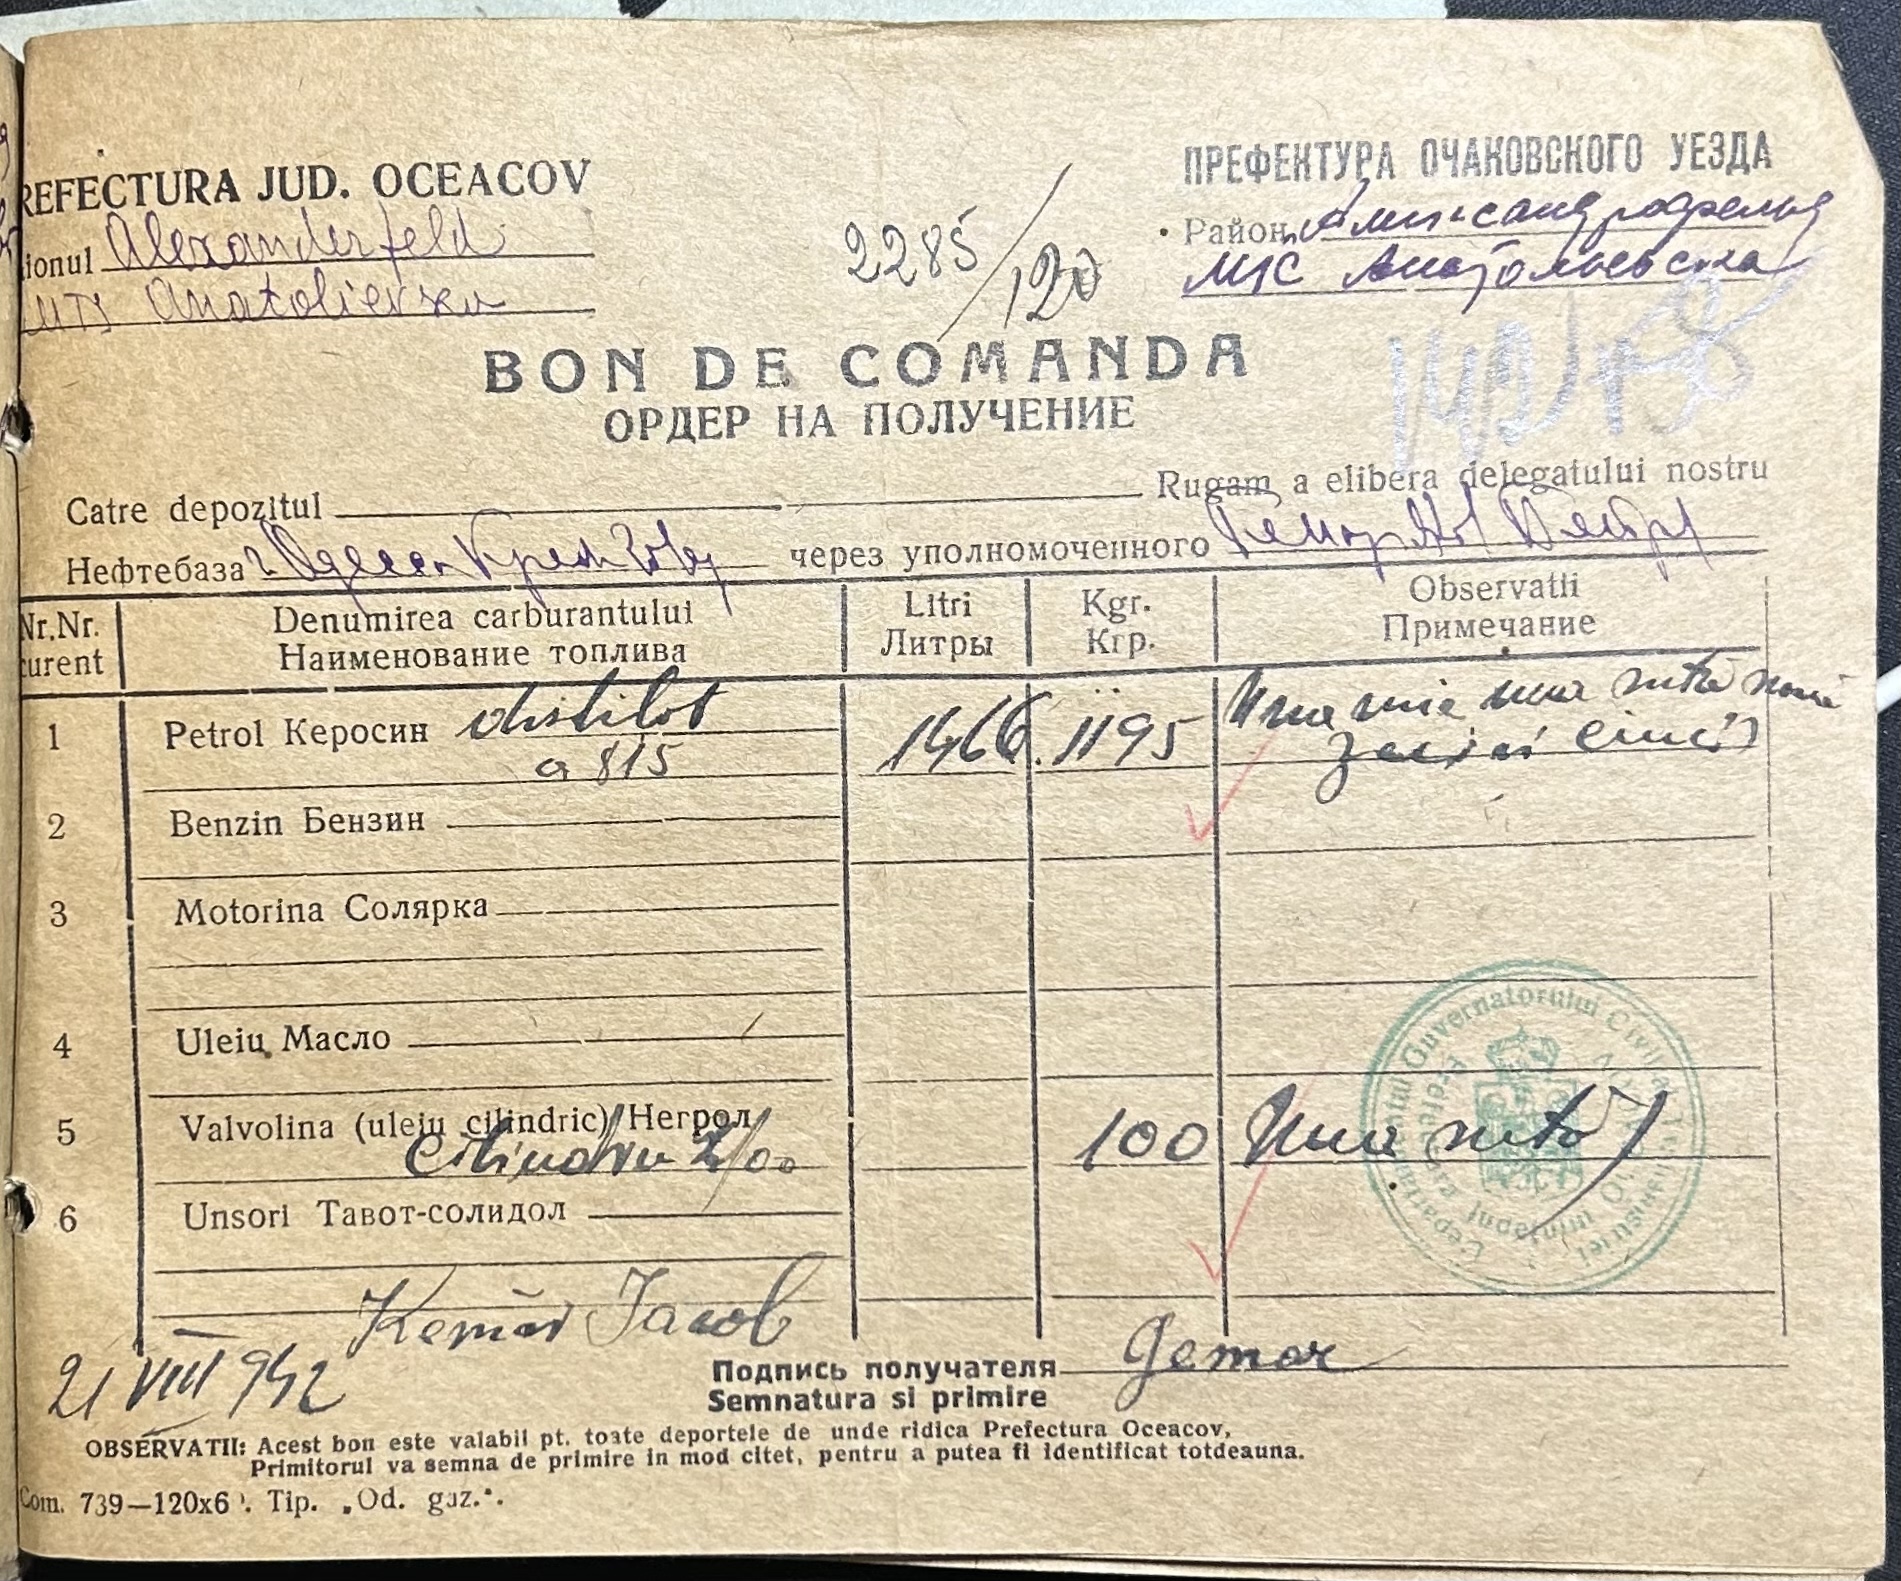 REFECTURA JUD. OCEACOV
ionul Alexanderfeld
MTS Anatolievka
2285/120
ПРЕФЕКТУРА ОЧАКОВСКОГО УЕЗДА
Район Александрофельд
МТС Анатольевска
BON DE COMANDA
ОРДЕР НА ПОЛУЧЕНИЕ
Catre depozitul Rugam a elibera delegatului nostru
Нефтебаза г. Одесса через уполномоченного Гемор
Nr.Nr. curent Denumirea carburantului Наименование топлива Litri Литры Kgr. Кгр. Observatii Примечание
1 Petrol Керосин distilat 1466 1195 Una mie una sută nouă
a 815 zeci si cinci
2 Benzin Бензин
3 Motorina Солярка
4 Uleiu Масло
5 Valvolina (uleiu cilindric) Негрол 100 Una sută
6 Unsori Тавот-солидол
Jacob
21 VIII 942
Подпись получателя Gemar
Semnatura si primire
OBSERVATII: Acest bon este valabil pt. toate deportele de unde ridica Prefectura Oceacov,
Primitorul va semna de primire in mod citet, pentru a putea fi identificat totdeauna.
Com. 739—120x6 Tip. „Od. gaz.".
Guvernatorului Civil